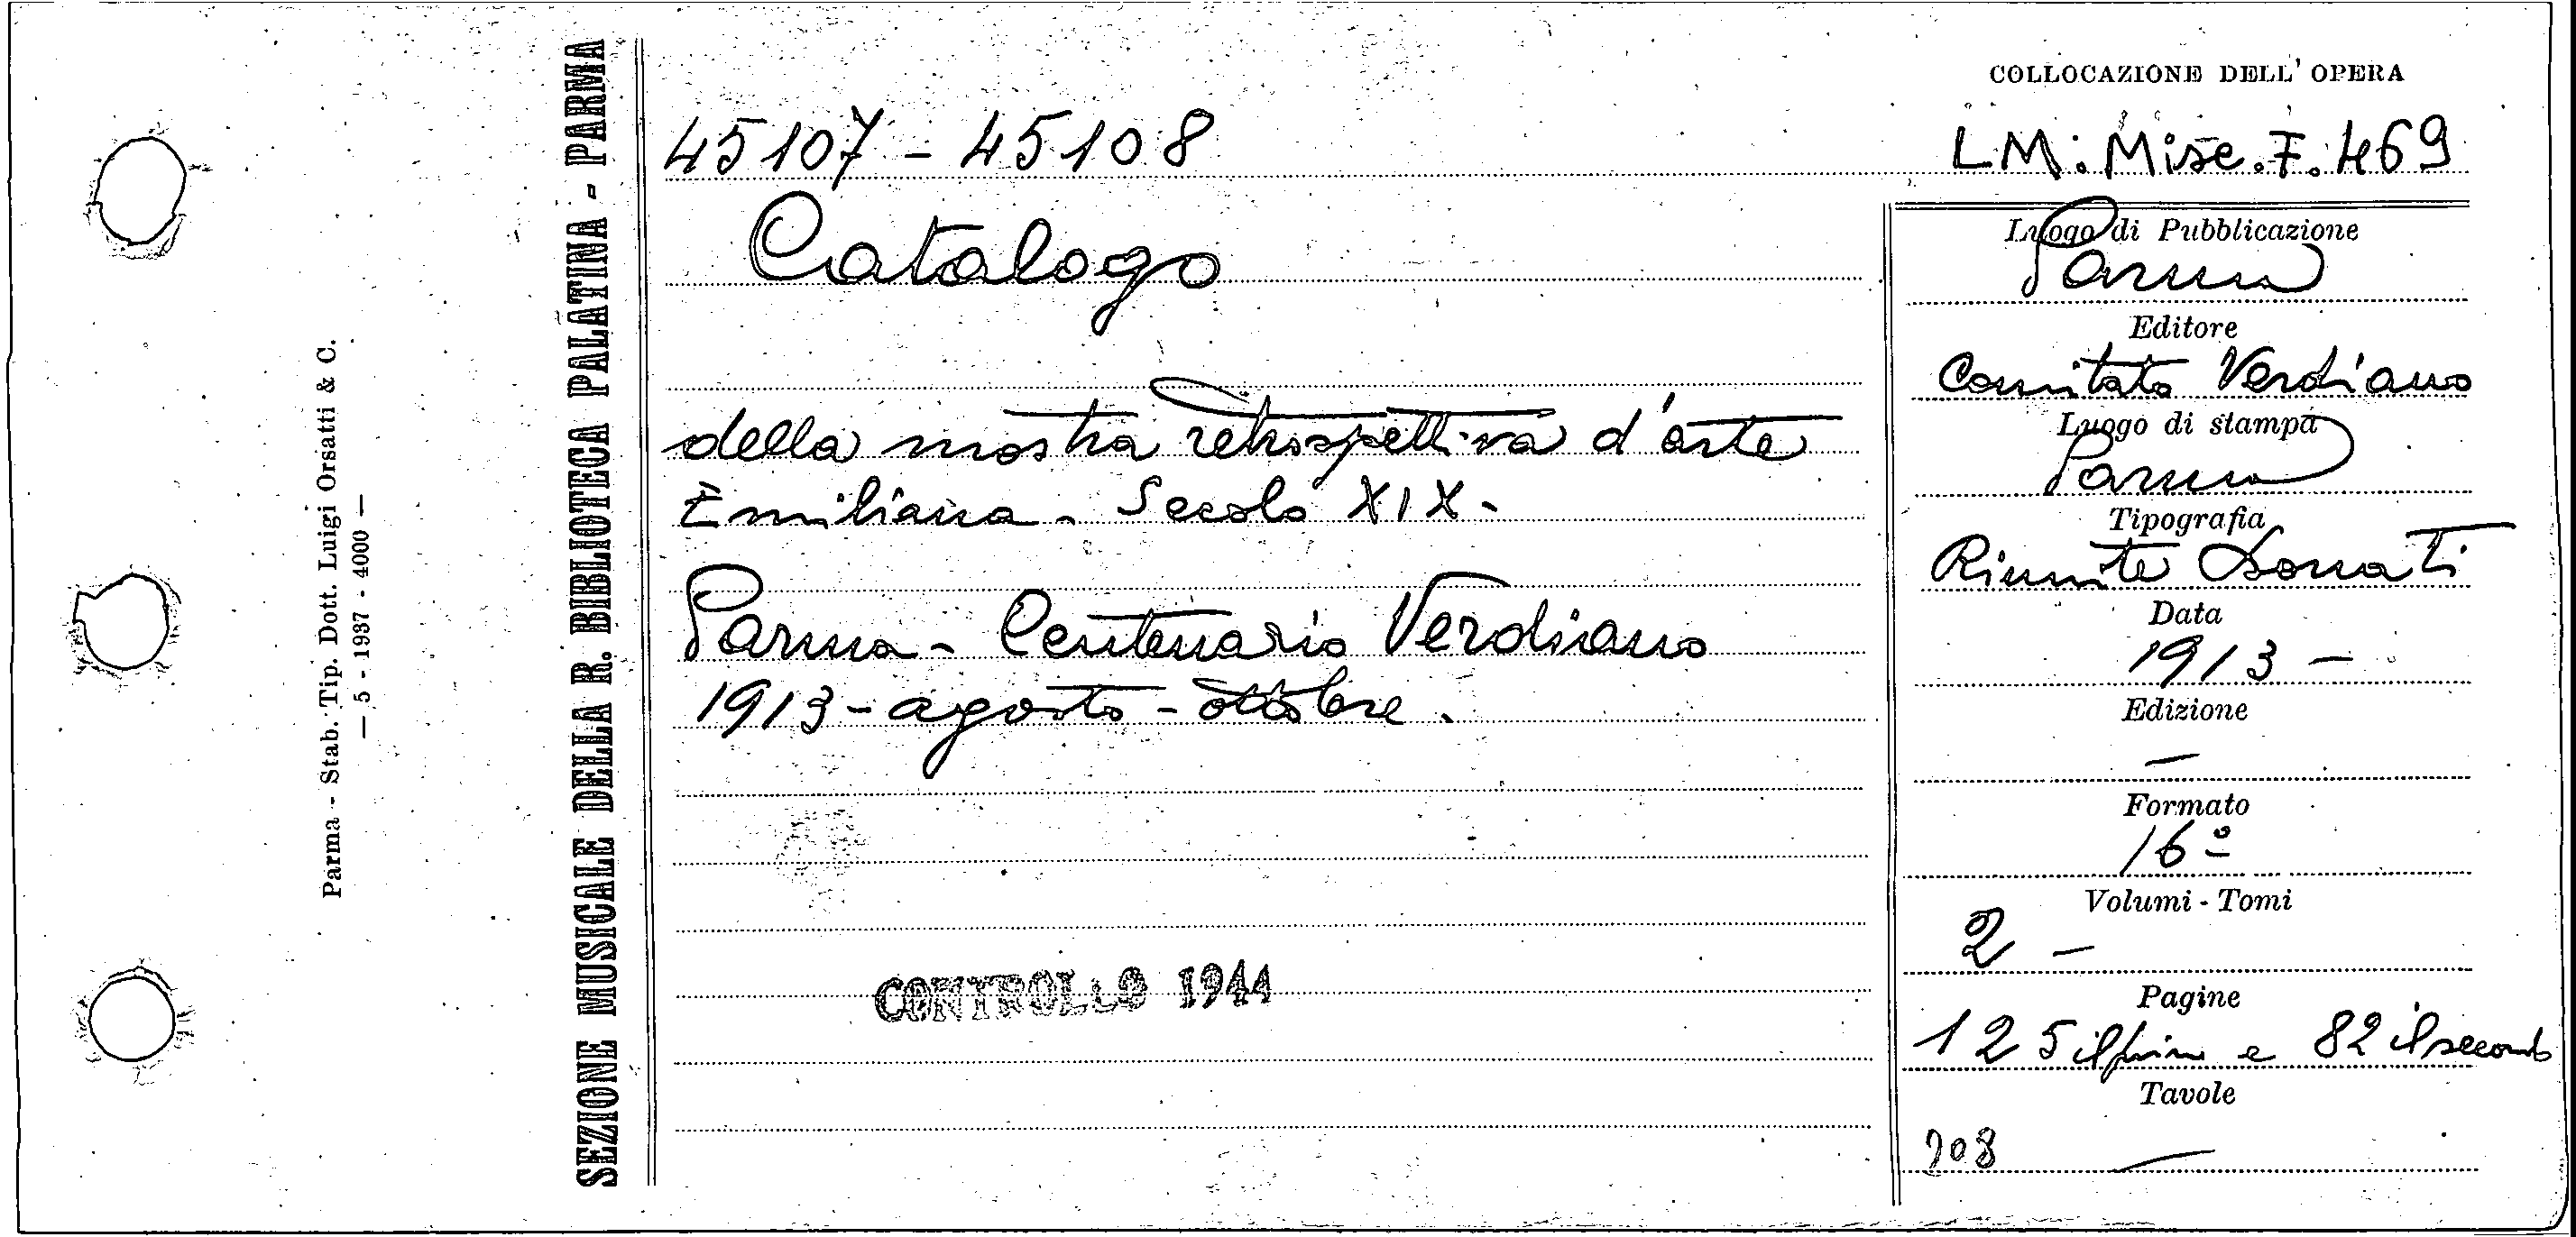 Parma - Stab. Tip. Dott. Luigi Orsatti & C.
— 5 - 1937 - 4000 —
SEZIONE MUSICALE DELLA R. BIBLIOTECA PALATINA - PARMA
45107 - 45108
Catalogo
della mostra retrospettiva d'arte
Emiliana - Secolo XIX -
Parma - Centenario Verdiano
1913 - agosto - ottobre.
CONTROLLO 1944
COLLOCAZIONE DELL' OPERA
LM: Misc. F. 469
Luogo di Pubblicazione
Parma
Editore
Comitato Verdiano
Luogo di stampa
Parma
Tipografia
Riunite Donati
Data
1913 -
Edizione
—
Formato
16º
Volumi - Tomi
2 -
Pagine
125 il primo e 82 il secondo
Tavole
908 —